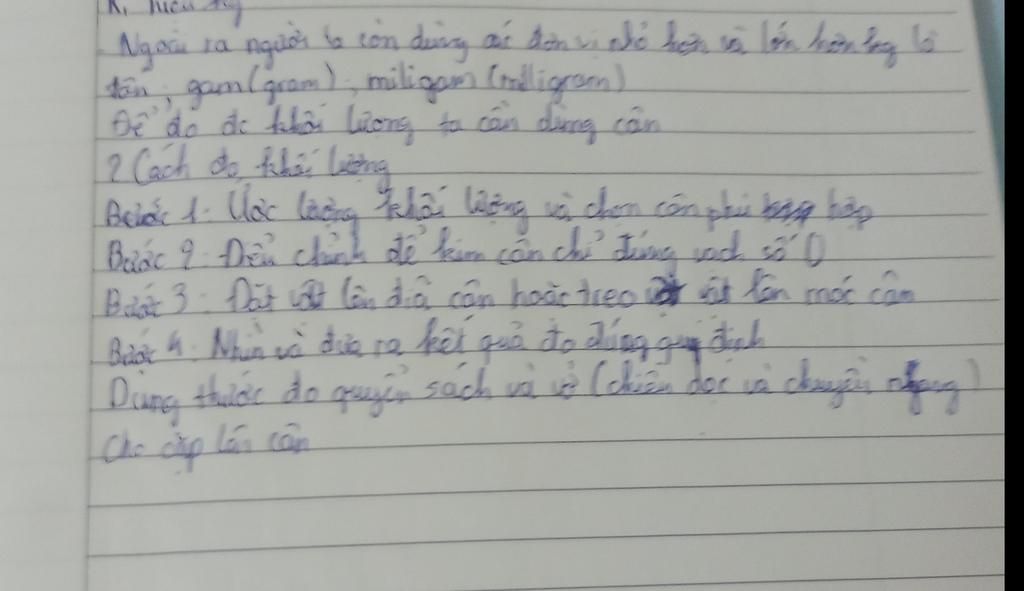 K. hiệu kg
Ngoài ra người ta còn dùng các đơn vị nhỏ hơn và lớn hơn kg là
tấn, gam (gram), miligam (milligram)
Để đo đc khối lượng ta cần dùng cân
2 Cách đo khối lượng
Bước 1: Ước lượng khối lượng và chọn cân phù hợp
Bước 2: Điều chỉnh để kim cân chỉ đúng vạch số 0
Bước 3: Đặt vật lên đĩa cân hoặc treo vật lên móc cân
Bước 4: Nhìn và đưa ra kết quả đo đúng quy định
Dùng thước đo quyển sách và vở (chiều dọc và ngang)
Cho cặp lên cân